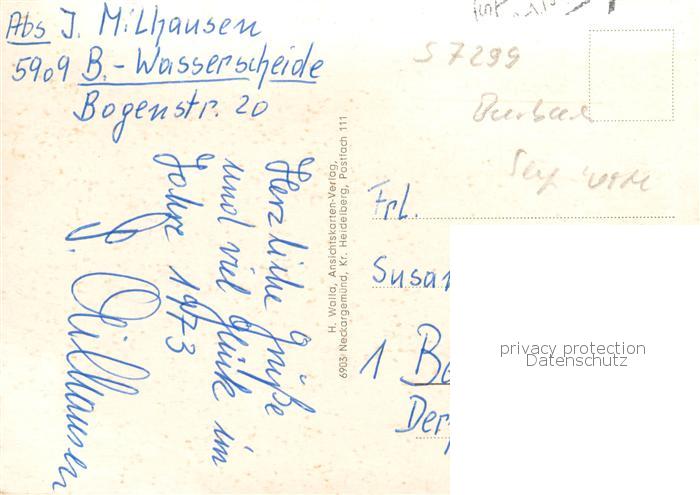 Abs J. Milhausen
5909 B.-Wasserscheide
Bogenstr. 20
Herzliche Grüße
und viel Glück im
Jahre 1973
J. Milhausen
H. Walla, Ansichtskarten-Verlag,
6903 Neckargemünd, Kr. Heidelberg, Postfach 111
S7299
Frl.
Susan
1 Be
Der
privacy protection
Datenschutz